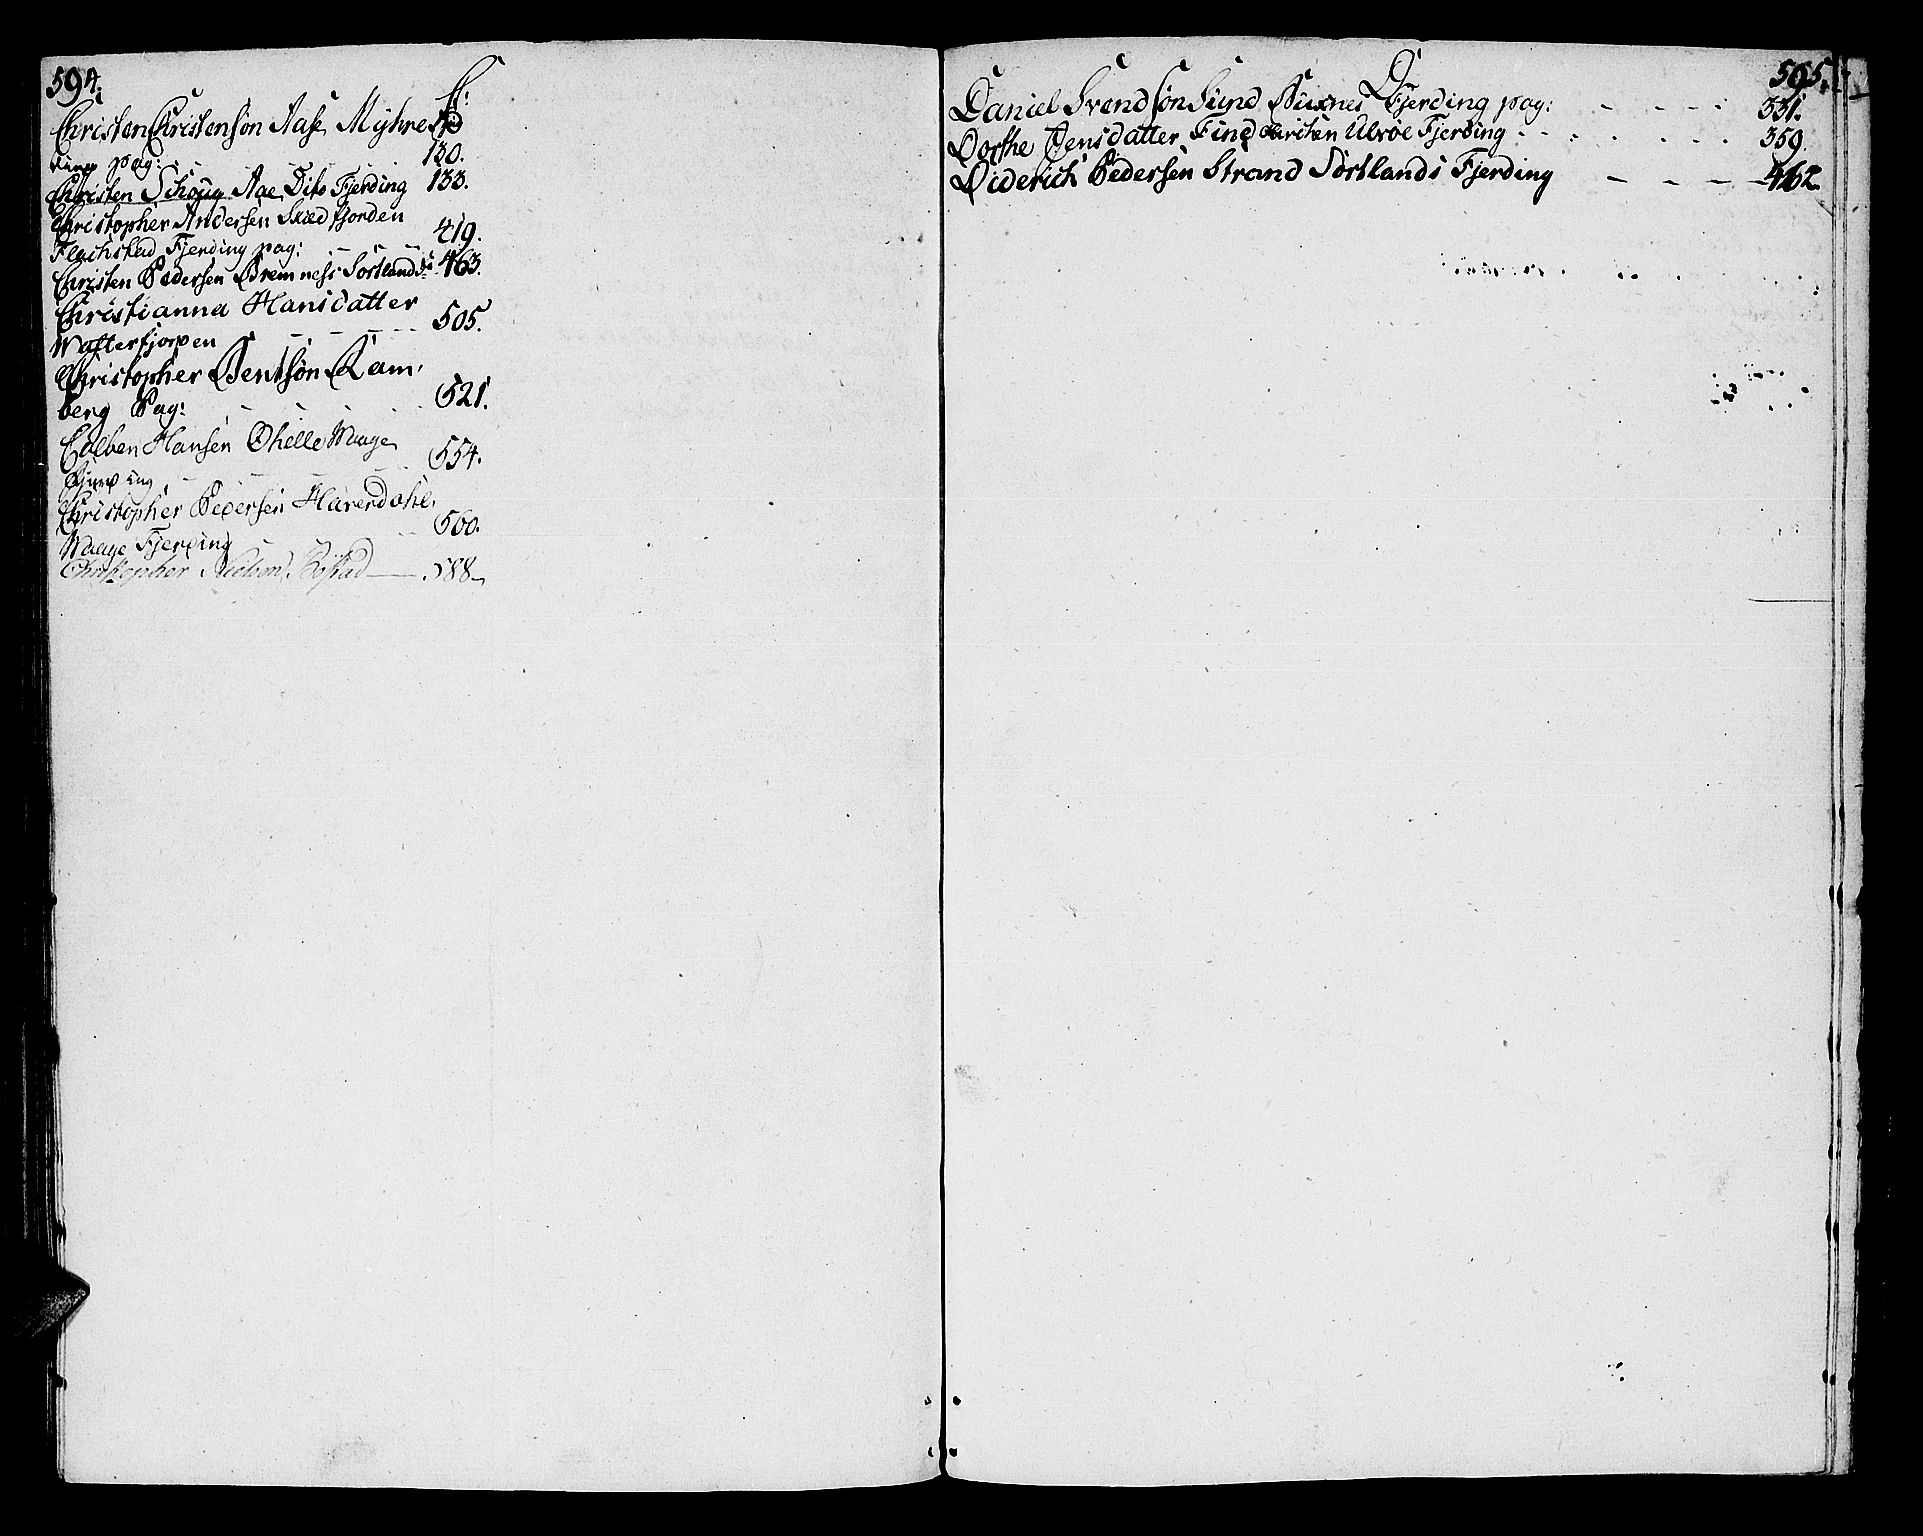 594.
C:
Christen Christensøn Aase Myhre
pag: 130.
Christen Schoug Aae Dito Fjerding 133.
Christopher Andersen Skiedfjorden
Flachstad Fjerding pag: 419.
Christen Pedersen Bremness Sortlands 463.
Christianna Hansdatter
Watterfjorden 505.
Christopher Bentsøn Ram-
berg Pag: 521.
Colben Hansen Ohelle Waage
Fjerding 554.
Christopher Pedersen Haverdahl
Waage Fjerding 560.
Christopher Nielsen Bøstad 588
595.
D
Daniel Svendsøn Sund Buxnes Fjerding pag: 331.
Dorthe Jensdatter Ulvøe Fjerding 359.
Diderich Pedersen Strand Sørtlands Fjerding 462